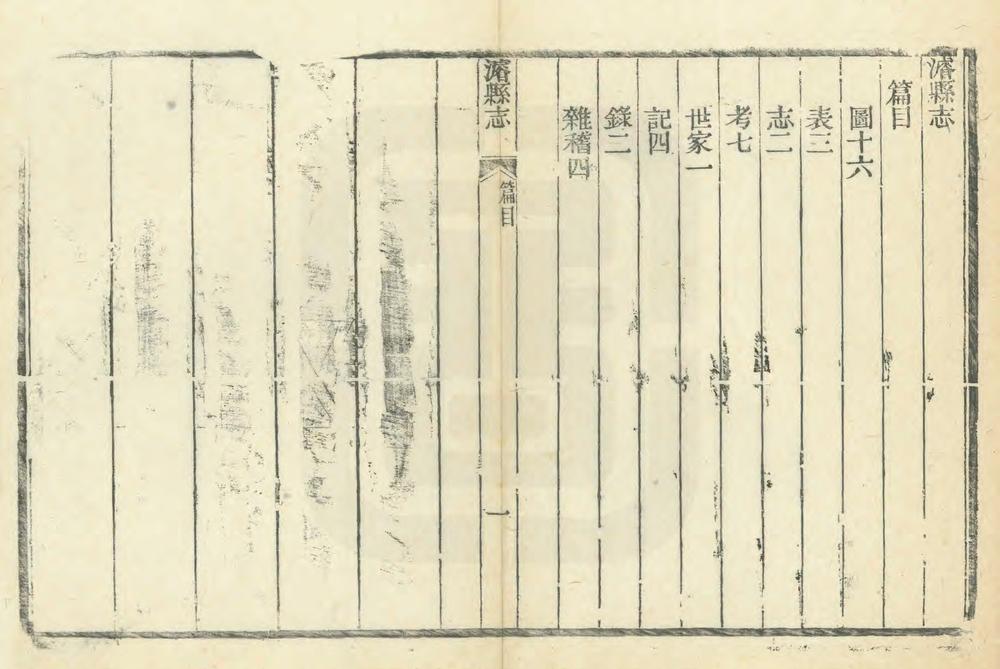 濬縣志
篇目
圖十六
表三
志二
考七
世家一
記四
錄二
雜稽四
濬縣志
篇目
一